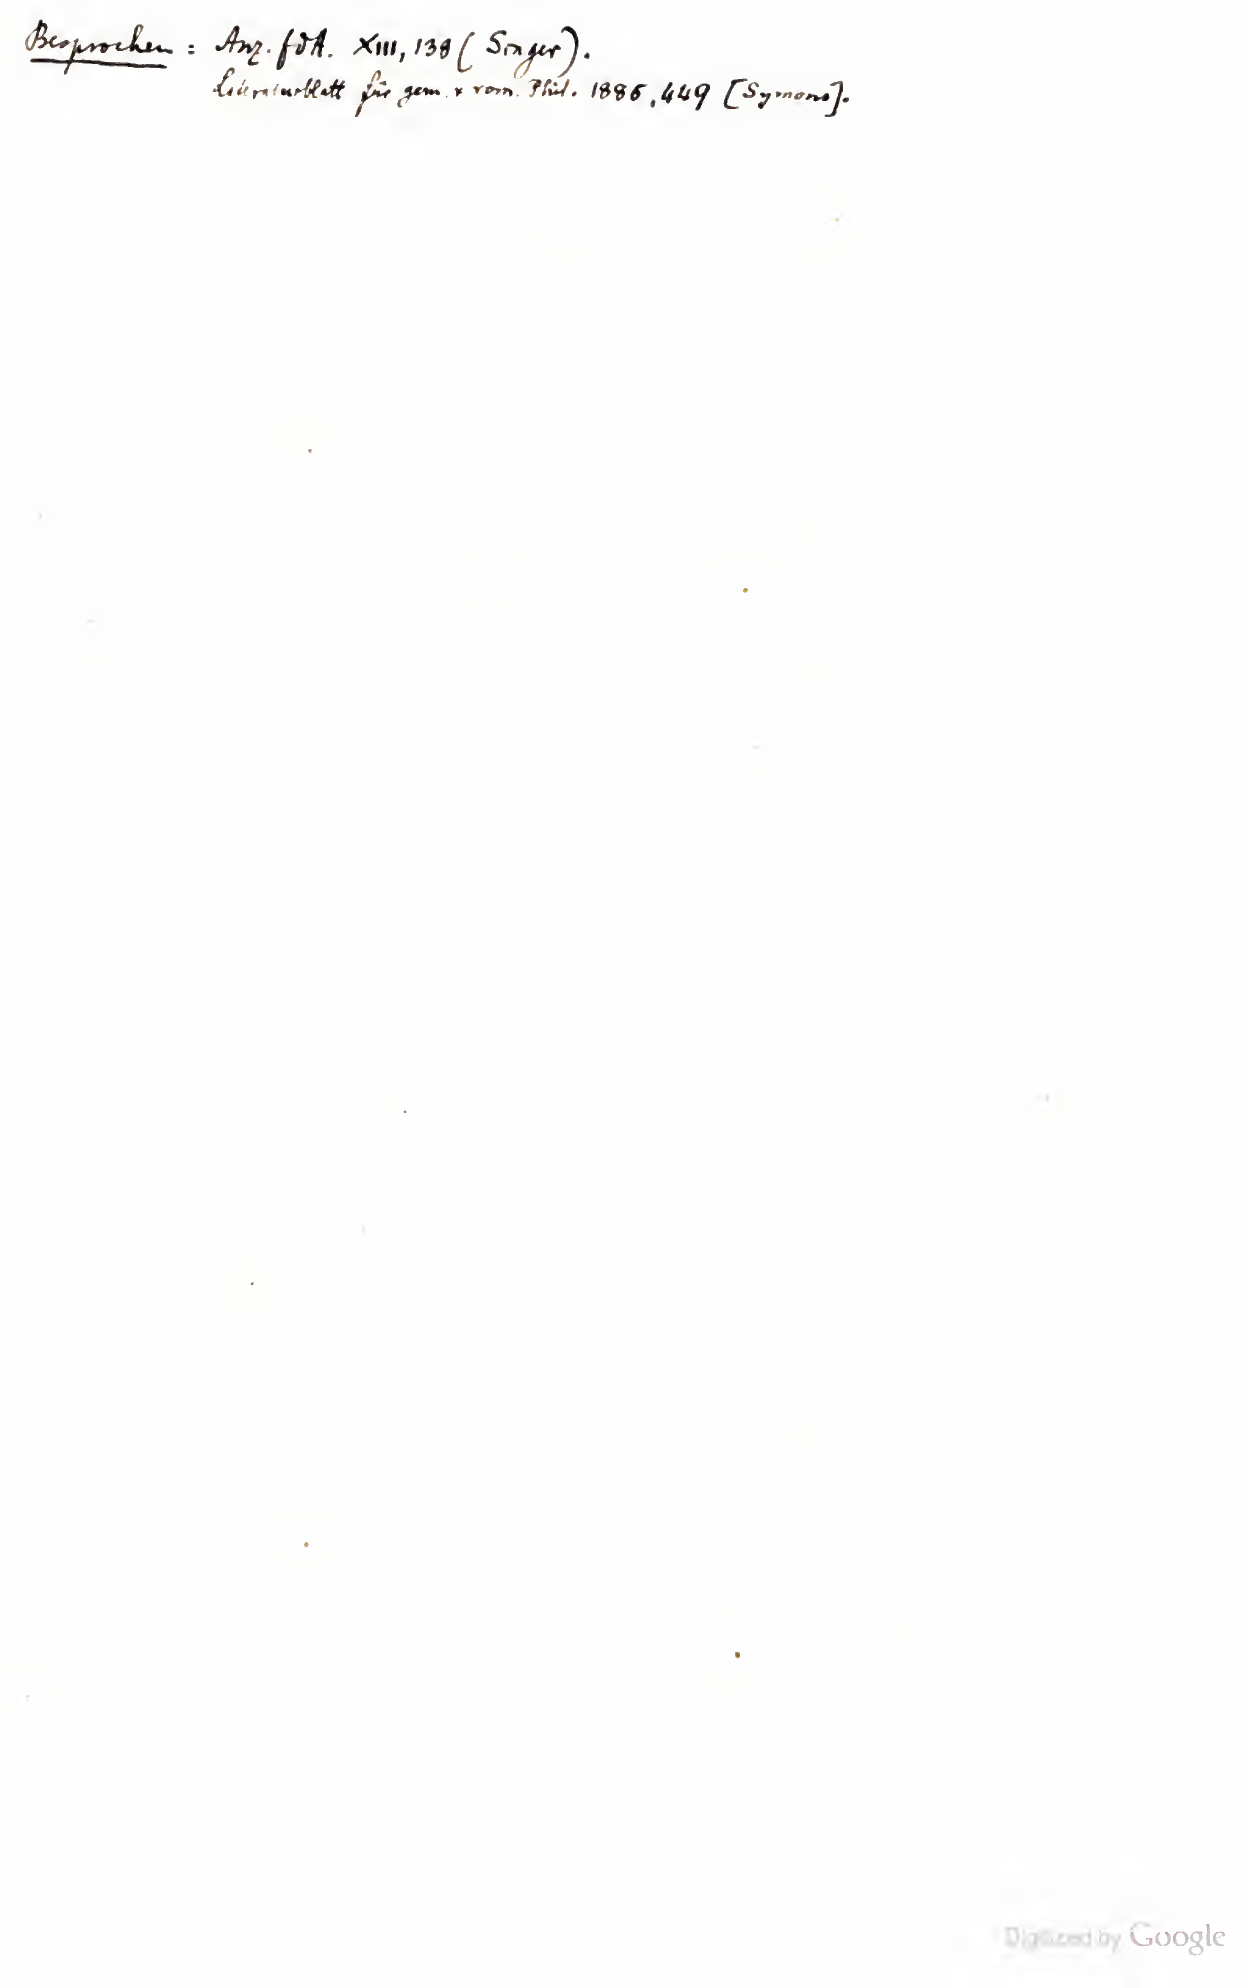 Besprochen : Anz. fdA. XIII, 138 ( Singer ).
Literaturblatt für germ. & rom. Phil. 1886, 449 [Symons].
Digitized by Google